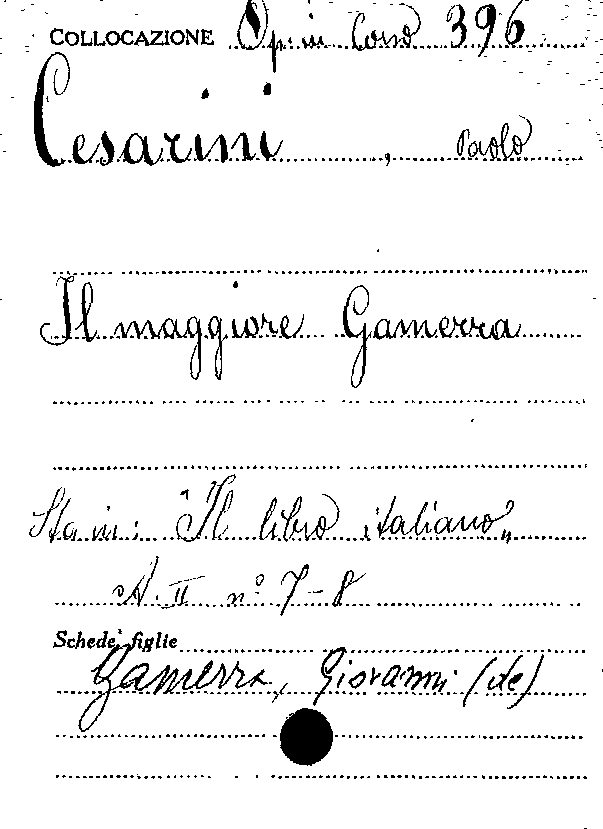 COLLOCAZIONE Op. in Corso 396
Cesarini, Paolo
Il maggiore Gamerra
Sta in: "Il libro italiano„
A. II n.° 7-8
Schede figlie
Gamerra, Giovanni (de)